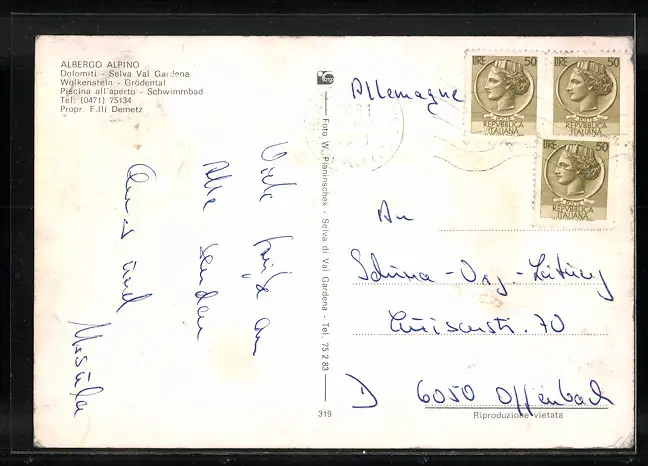 ALBERGO ALPINO
Dolomiti - Selva Val Gardena
Wolkenstein - Grödental
Piscina all'aperto - Schwimmbad
Tel. (0471) 75134
Propr. F.lli Demetz
Viele Grüße an
Alle senden
und
Ursula
Foto W. Planinschek - Selva di Val Gardena - Tel. 75 2 83
319
Allemagne
LIRE 50
REPVBBLICA
ITALIANA
LIRE 50
REPVBBLICA
ITALIANA
LIRE 50
REPVBBLICA
ITALIANA
An
Luisenstr. 70
D 6050 Offenbach
Riproduzione vietata